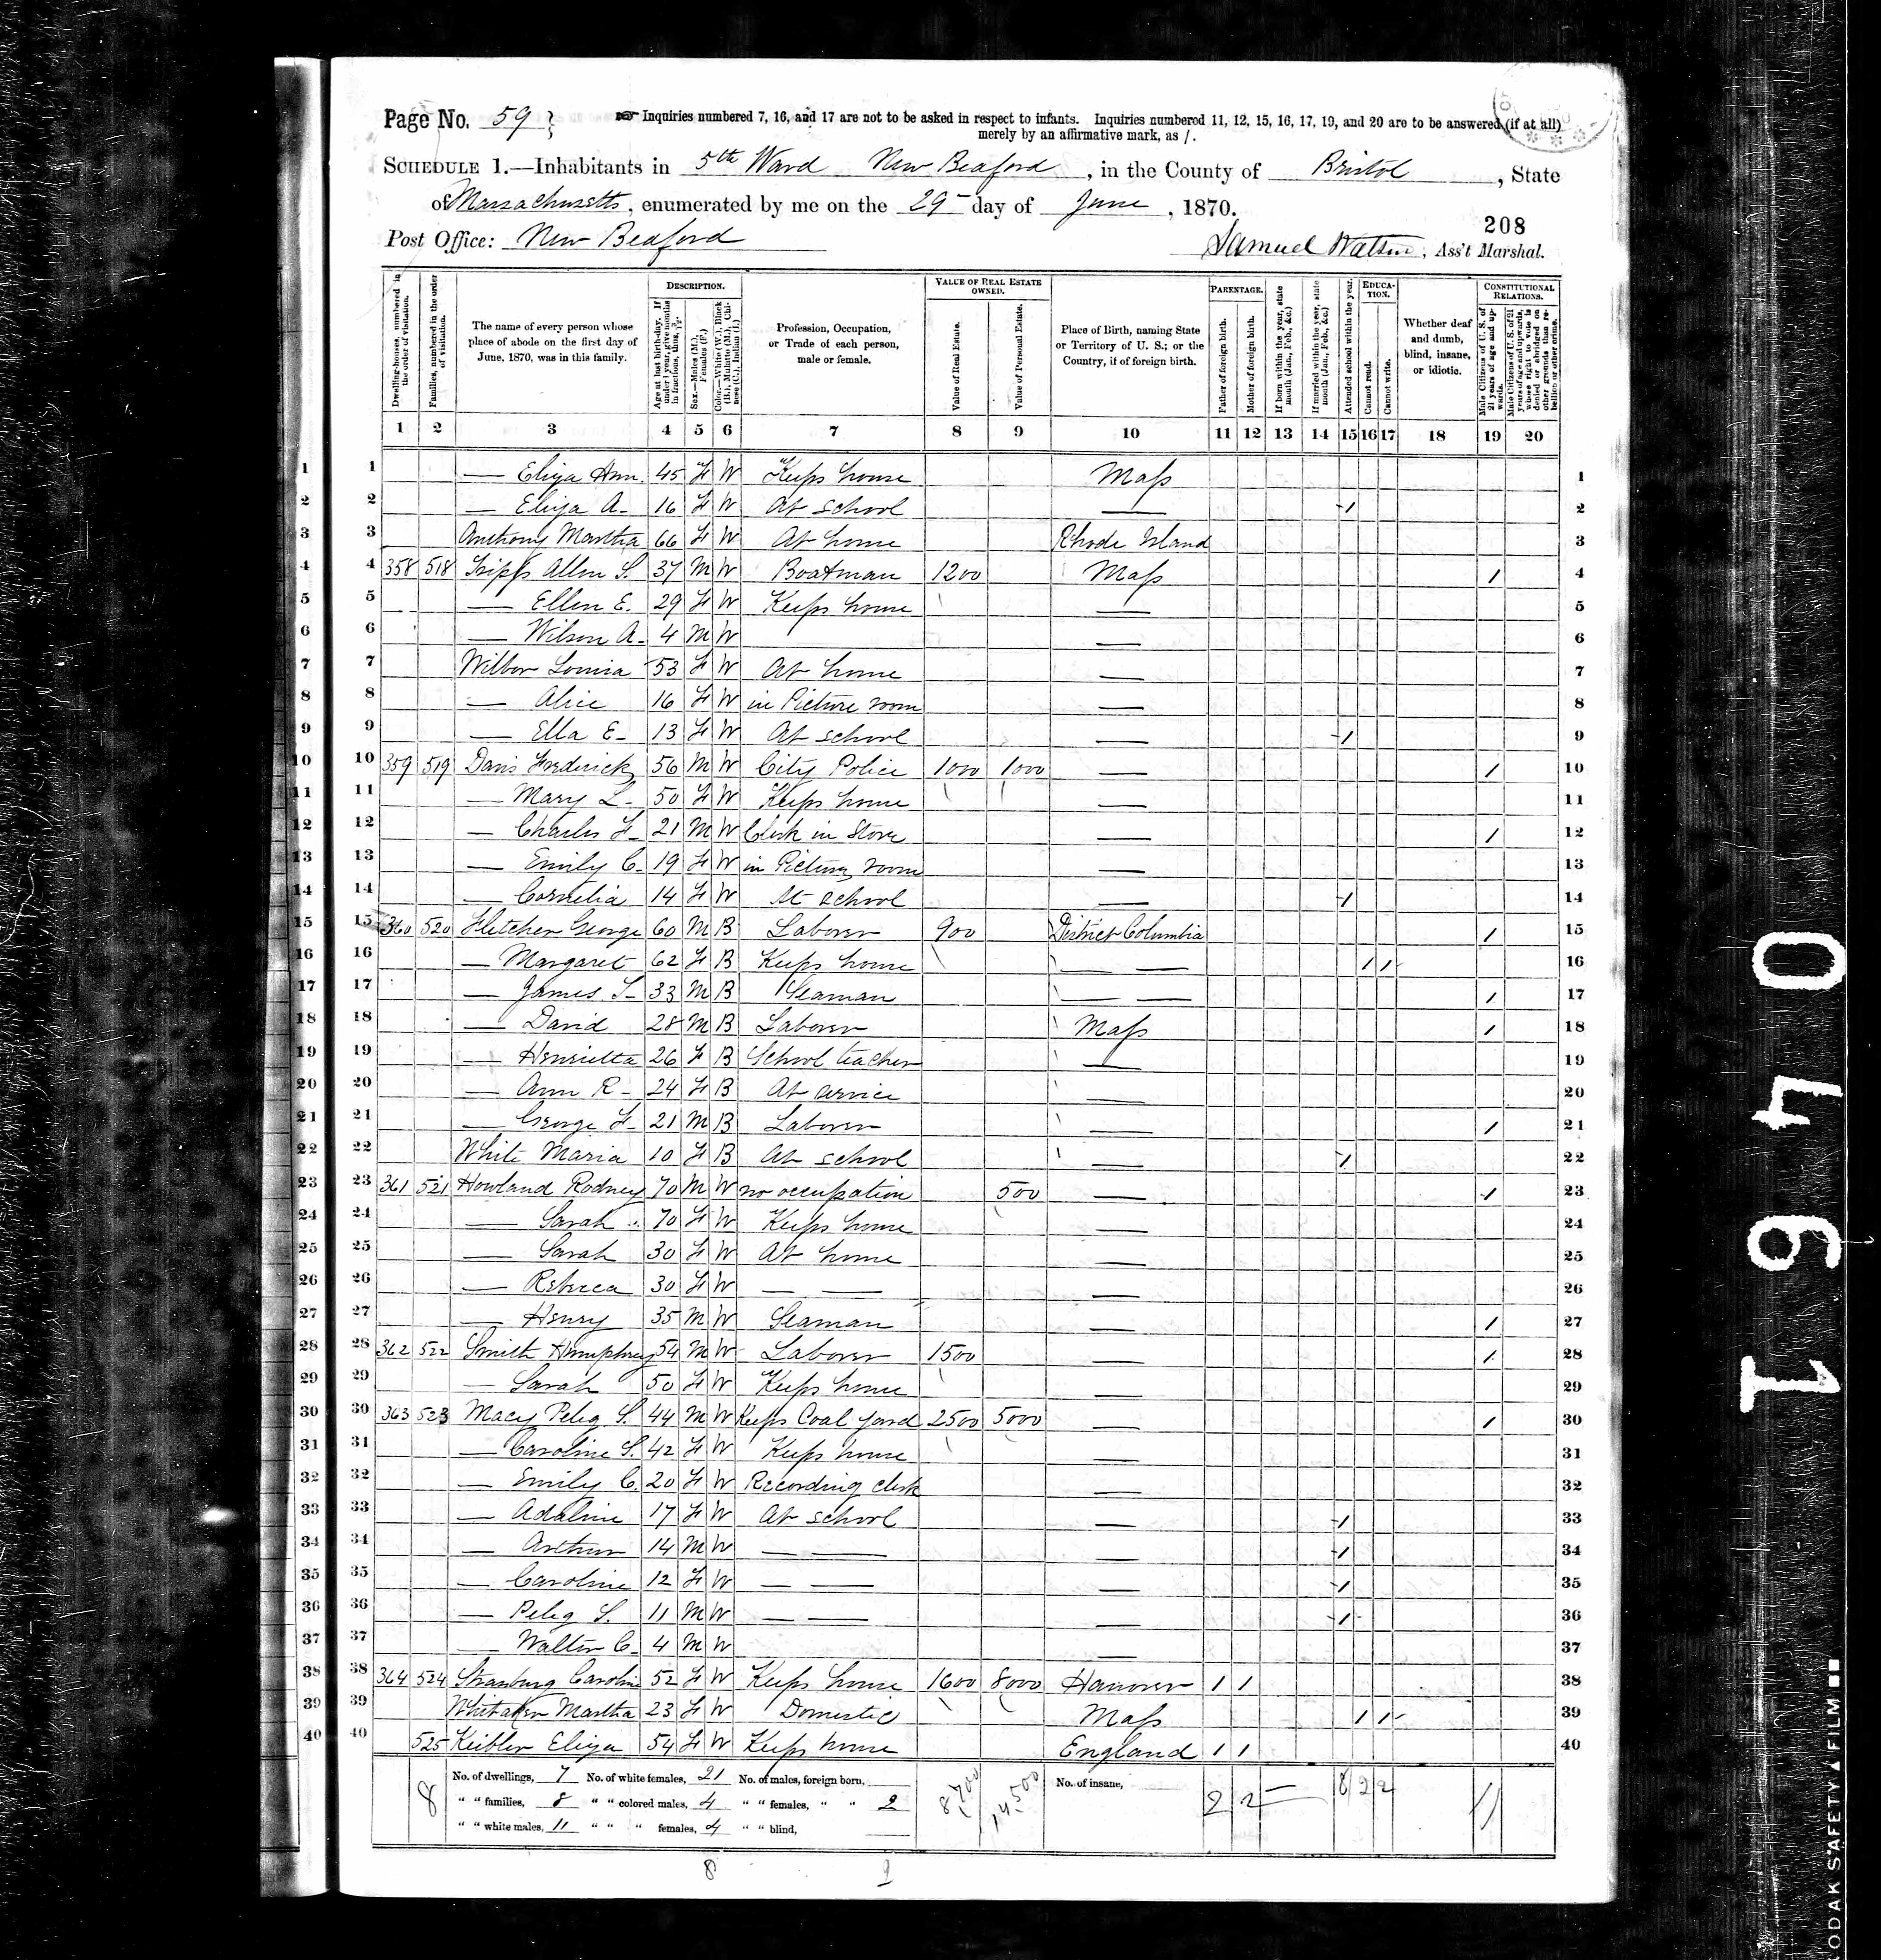 Page No. 59
☞ Inquiries numbered 7, 16, and 17 are not to be asked in respect to infants. Inquiries numbered 11, 12, 15, 16, 17, 19, and 20 are to be answered (if at all)
merely by an affirmative mark, as /.
SCHEDULE 1.—Inhabitants in 5th Ward New Bedford, in the County of Bristol, State
of Massachusetts, enumerated by me on the 29 day of June, 1870.
208
Post Office: New Bedford
Samuel Watson, Ass't Marshal.
Dwelling-houses, numbered in the order of visitation.
Families, numbered in the order of visitation.
The name of every person whose place of abode on the first day of June, 1870, was in this family.
DESCRIPTION.
Age at last birth-day. If under 1 year, give months in fractions, thus, 3/12.
Sex.—Males (M.), Females (F.)
Color.—White (W.), Black (B.), Mulatto (M.), Chinese (C.), Indian (I.)
Profession, Occupation, or Trade of each person, male or female.
VALUE OF REAL ESTATE OWNED.
Value of Real Estate.
Value of Personal Estate.
Place of Birth, naming State or Territory of U. S.; or the Country, if of foreign birth.
PARENTAGE.
Father of foreign birth.
Mother of foreign birth.
If born within the year, state month (Jan., Feb., &c.)
If married within the year, state month (Jan., Feb., &c.)
Attended school within the year.
EDUCATION.
Cannot read.
Cannot write.
Whether deaf and dumb, blind, insane, or idiotic.
CONSTITUTIONAL RELATIONS.
Male Citizens of U. S. of 21 years of age and upwards.
Male Citizens of U. S. of 21 years of age and upwards, whose right to vote is denied or abridged on other grounds than rebellion or other crime.
1 2 3 4 5 6 7 8 9 10 11 12 13 14 15 16 17 18 19 20
1 1 — Eliza Ann 45 F W Keeps house Mass 1
2 2 — Eliza A. 16 F W At school — / 2
3 3 Anthony Martha 66 F W At home Rhode Island 3
4 4 358 518 Tripp Allen S. 37 M W Boatman 1200 Mass / 4
5 5 — Ellen E. 29 F W Keeps house — 5
6 6 — Wilson A. 4 M W — 6
7 7 Wilbor Louisa 53 F W At home — 7
8 8 — Alice 16 F W in Picture room — 8
9 9 — Ella E. 13 F W At school — / 9
10 10 359 519 Davis Frederick 56 M W City Police 1000 1000 — / 10
11 11 — Mary L. 50 F W Keeps house — 11
12 12 — Charles F. 21 M W Clerk in Store — / 12
13 13 — Emily C. 19 F W in Picture room — 13
14 14 — Cornelia 14 F W At school — / 14
15 15 360 520 Fletcher George 60 M B Laborer 900 District Columbia / 15
16 16 — Margaret 62 F B Keeps house — — / / 16
17 17 — James T. 33 M B Seaman — — / 17
18 18 — David 28 M B Laborer Mass / 18
19 19 — Henrietta 26 F B School teacher — 19
20 20 — Ann R. 24 F B At service — 20
21 21 — George F. 21 M B Laborer — / 21
22 22 White Maria 10 F B At school — / 22
23 23 361 521 Howland Rodney 70 M W no occupation 500 — / 23
24 24 — Sarah 70 F W Keeps house — 24
25 25 — Sarah 30 F W At home — 25
26 26 — Rebecca 30 F W — — — 26
27 27 — Henry 35 M W Seaman — / 27
28 28 362 522 Smith Humphrey 54 M W Laborer 1500 — / 28
29 29 — Sarah 50 F W Keeps house — 29
30 30 363 523 Macy Peleg S. 44 M W Keeps Coal yard 2500 5000 — / 30
31 31 — Caroline S. 42 F W Keeps house — 31
32 32 — Emily C. 20 F W Recording clerk — 32
33 33 — Adaline 17 F W At school — / 33
34 34 — Arthur 14 M W — — — / 34
35 35 — Caroline 12 F W — — — / 35
36 36 — Peleg S. 11 M W — — — / 36
37 37 — Walter C. 4 M W — 37
38 38 364 524 Strasburg Caroline 52 F W Keeps house 1600 8000 Hanover / / 38
39 39 Whitaker Martha 23 F W Domestic Mass / / 39
40 40 525 Keibler Eliza 54 F W Keeps house England / / 40
8 No. of dwellings, 7 No. of white females, 21 No. of males, foreign born, 8700 14,500 No. of insane, 2 2 — 8 2 2 11
" " families, 8 " " colored males, 4 " " females, " " 2
" " white males, 11 " " " females, 4 " " blind,
8 2
19470
KODAK SAFETY ▲ FILM